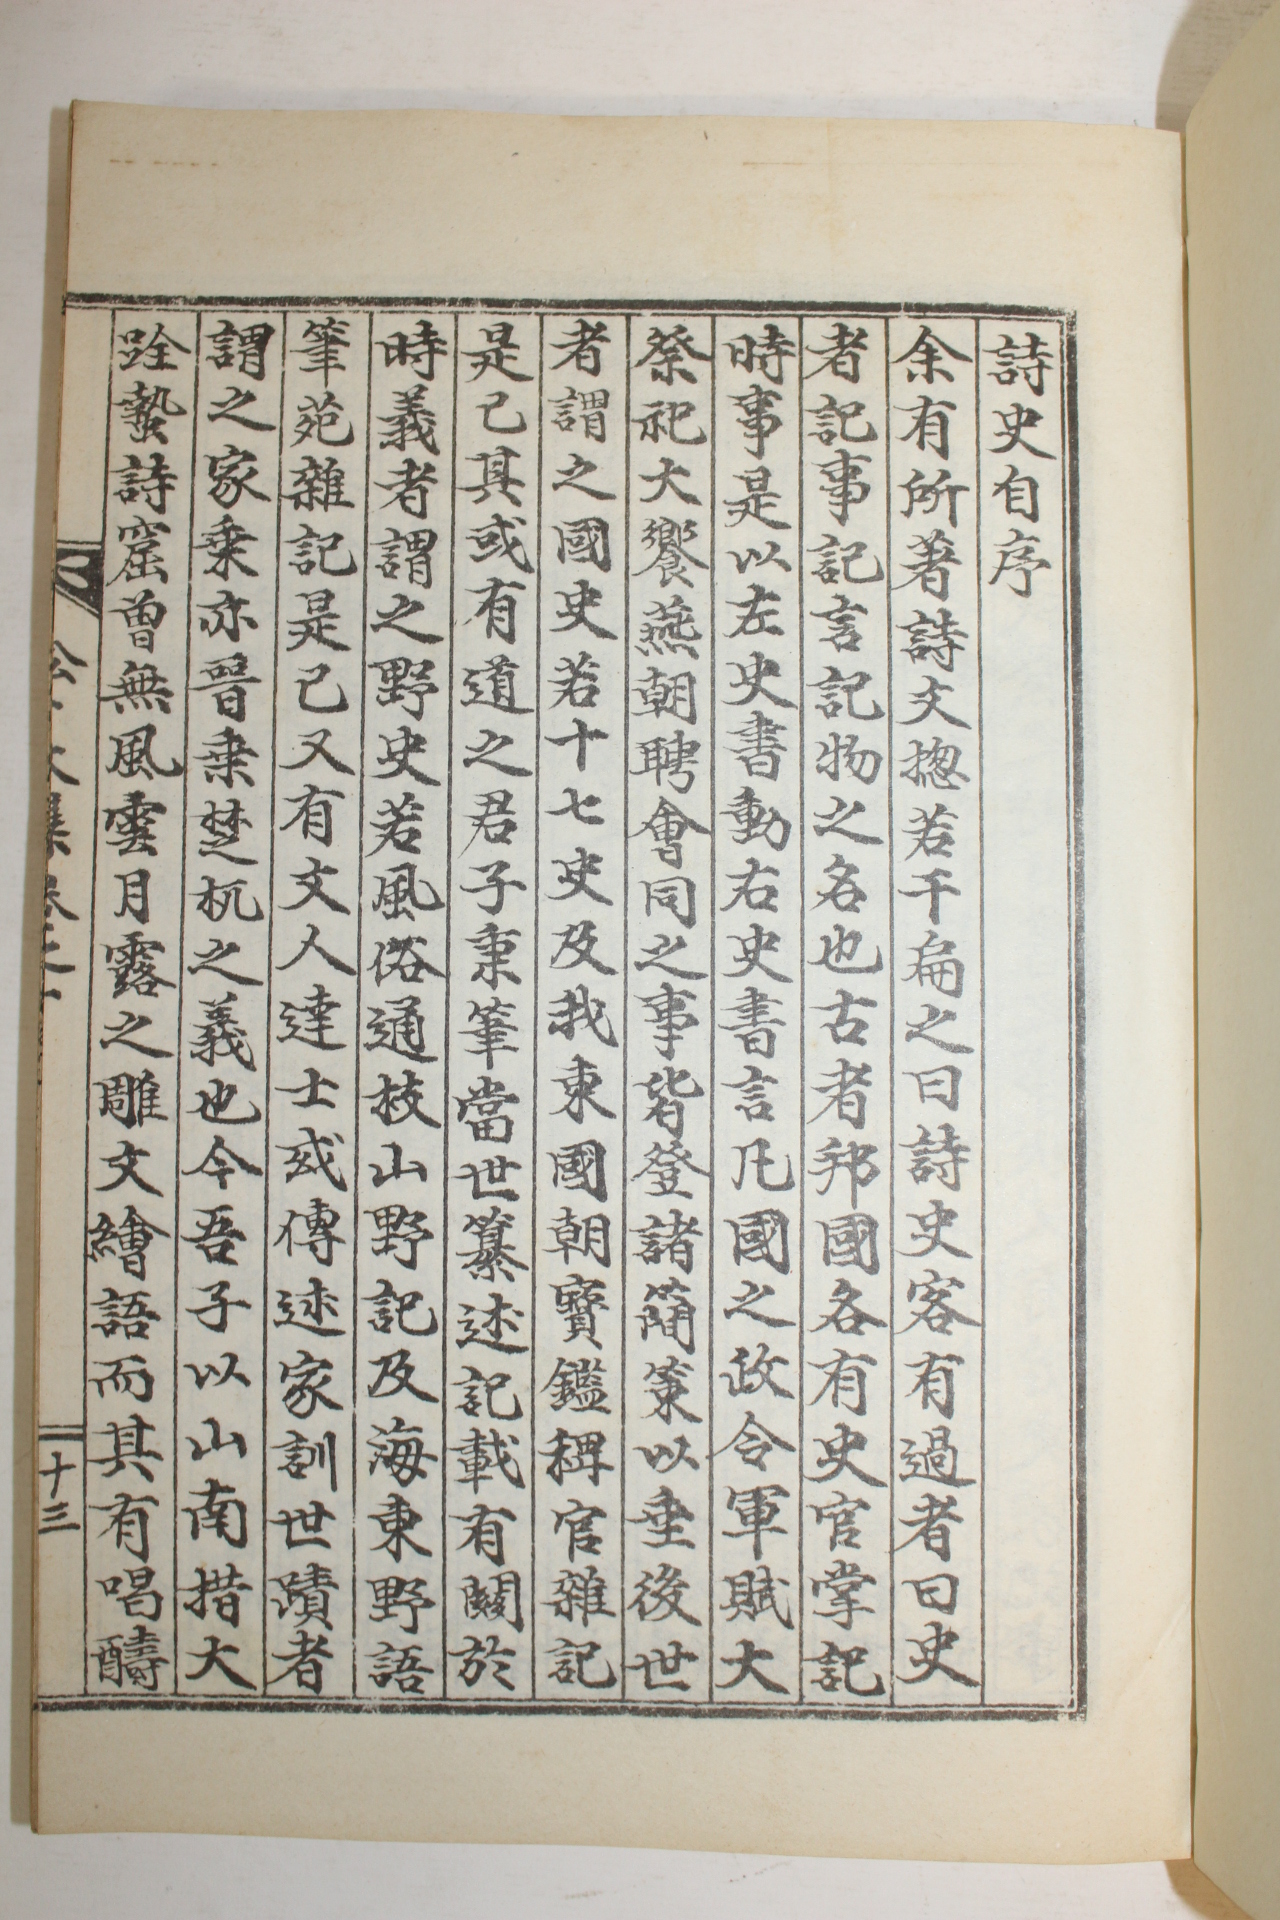 詩史自序
余有所著詩文揔若干扁之曰詩史客有過者曰史
者記事記言記物之名也古者邦國各有史官掌記
時事是以左史書動右史書言凡國之政令軍賦大
祭祀大饗燕朝聘會同之事皆登諸簡策以垂後世
者謂之國史若十七史及我東國朝寶鑑稗官雜記
是已其或有道之君子秉筆當世纂述記載有關於
時義者謂之野史若風俗通枝山野記及海東野語
筆苑雜記是已又有文人達士或傳述家訓世蹟者
謂之家乘亦晉乘楚杌之義也今吾子以山南措大
跧蟄詩窟曾無風雲月露之雕文繪語而其有唱酬
集卷之
十三